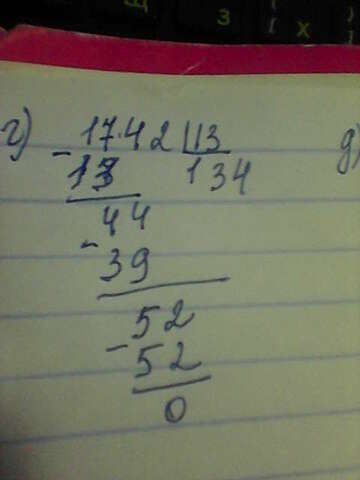 щ з х
г) - 1742 | 13
13 134
44
- 39
52
- 52
0
д)